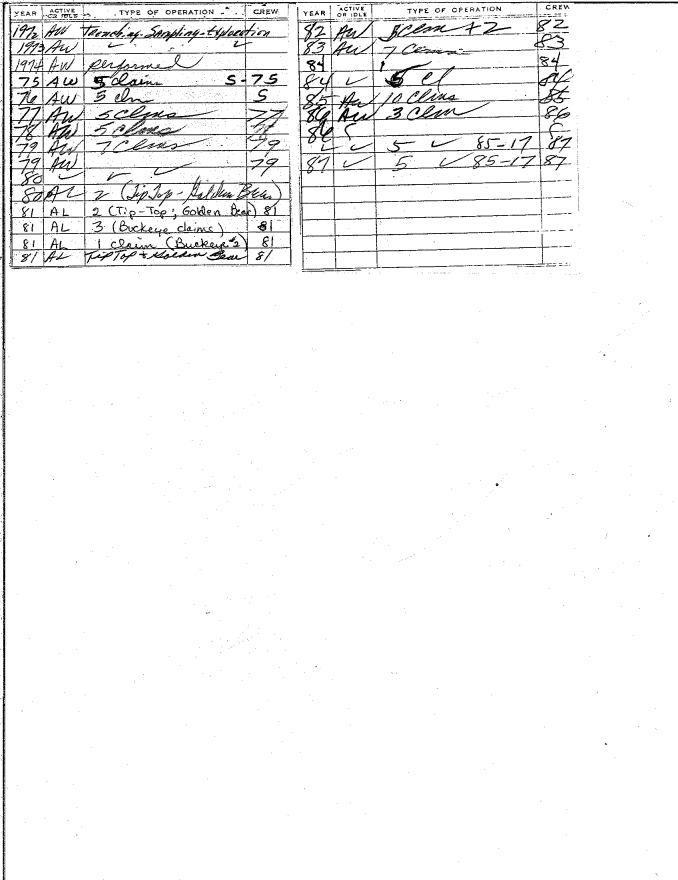 YEAR ACTIVE OR IDLE TYPE OF OPERATION CREW
1972 AW Trenching-Sampling-Exploration
1973 AW ✓ ✓
1974 AW performed
75 AW 5 claim S-75
76 AW 5 clm S
77 AW 5 Clms 77
78 AW 5 clms
79 AW 7 Clms 79
79 AW ✓ 79
80 ✓ ✓ ✓
80 AL 2 (Tip Top - Golden Bear)
81 AL 2 (Tip-Top; Golden Bear) 81
81 AL 3 (Buckeye claims) 81
81 AL 1 claim (Buckeye #2) 81
81 AL Tip Top & Golden Bear 81
YEAR ACTIVE OR IDLE TYPE OF OPERATION CREW
82 AW clm +2 82
83 AW 7 83
84 84
84 ✓ 5 cl 84
85 AW 10 Clms 85
86 AW 3 Clm 86
86
✓ ✓ 5 ✓ 85-17 87
87 ✓ 5 ✓ 85-17 87